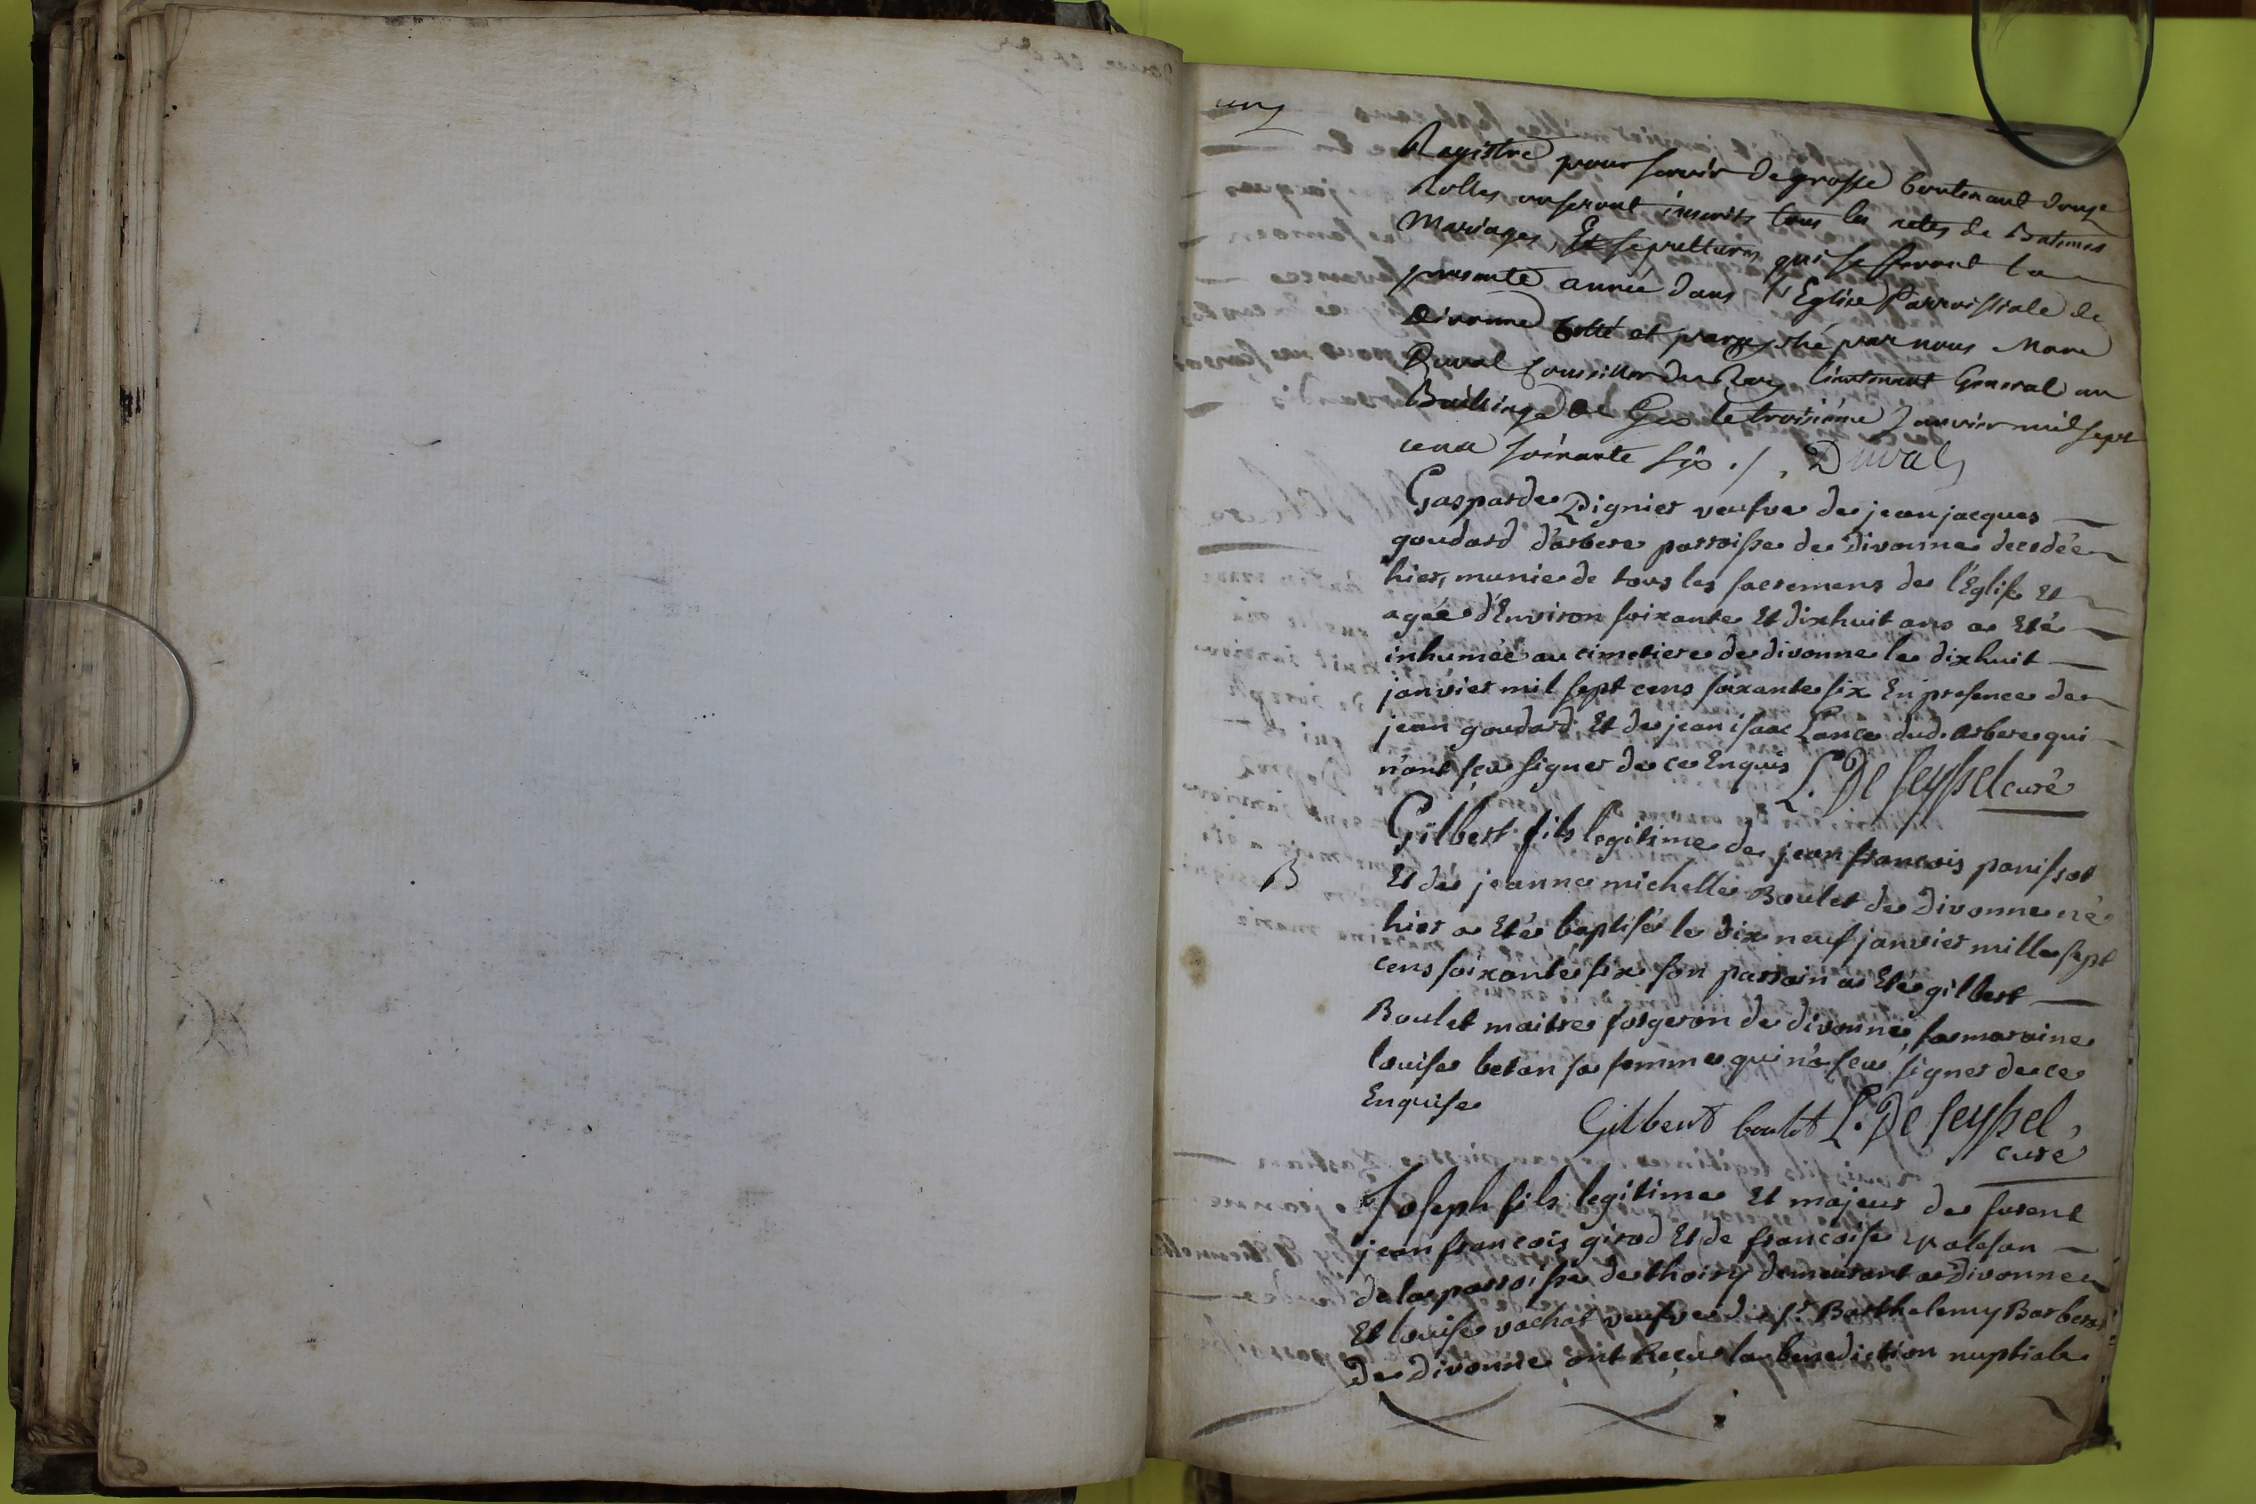 un
Registre pour servir de grosse Contenant douze
Rolles ou seront inscrits tous les actes de Batemes
Mariages, Et sepultures, qui se feront la
presente année dans l'Eglise Parroissiale de
Divonne Cotté et paraphé par nous Marc
Duval Conseiller du Roy Lieutenant General au
Bailliage de Gex le troisième Janvier mil sept
cent soixante six ./. Duval
Gasparde Pignier veufve de jean jacques
goudard d'arbere parroisse de Divonne decedée
hier, munie de tous les sacremens de l'Eglise Et
agée d'Environ soixante Et dixhuit ans a Eté
inhumée au cimetiere de divonne le dixhuit
janvier mil sept cens soixante six En presence de
jean goudard Et de jean isaac Lance dud. arbere qui
n'ont sçu signer de ce Enquis L. De seyssel curé
Gilbert fils legitime de jean francois panissot
B
Et de jeanne michelle Boulet de Divonne né
hier a Eté baptisé le dix neuf janvier mille sept
cens soixante six son parrain a Eté gilbert
Boulet maitre forgeron de divonne, sa maraine
louise betan sa femme qui n'a sçu signer de ce
Enquise
Gilbert boulet L. De seyssel,
curé
Joseph fils legitime Et majeur de furent
jean francois girod Et de francoise
de la parroisse de thoiry demeurant a Divonne
Et louise vachat veufve de sr. Barthelemy Barberat
De divonne ont Reçu la benediction nuptiale